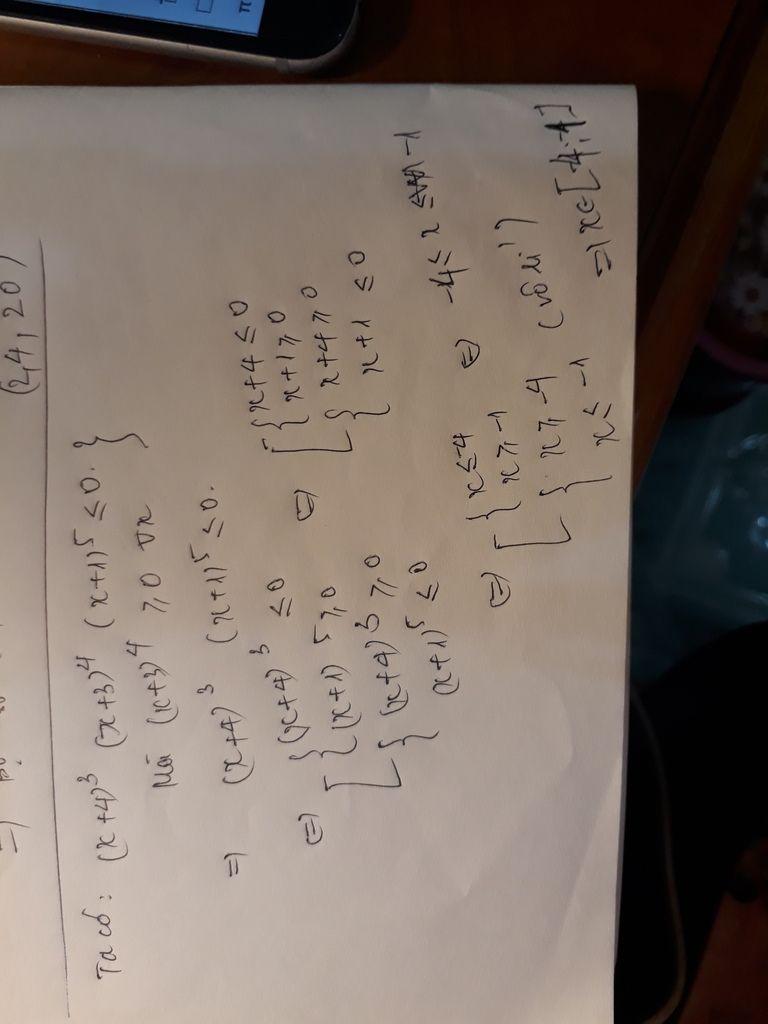 (2,4, 20)
Ta có: (x+4)³ (x+3)⁴ (x+1)⁵ ≤ 0. }
Mà (x+3)⁴ ≥ 0 ∀x
⇒ (x+4)³ (x+1)⁵ ≤ 0.
⇔ [ { (x+4)³ ≤ 0
(x+1)⁵ ≥ 0
{ (x+4)³ ≥ 0
(x+1)⁵ ≤ 0
⇔ [ { x+4 ≤ 0
x+1 ≥ 0
{ x+4 ≥ 0
x+1 ≤ 0
⇔ [ { x ≤ -4
x ≥ -1
{ x ≥ -4
x ≤ -1
(vô lí)
⇔ -4 ≤ x ≤ -1
⇒ x ∈ [-4;-1]